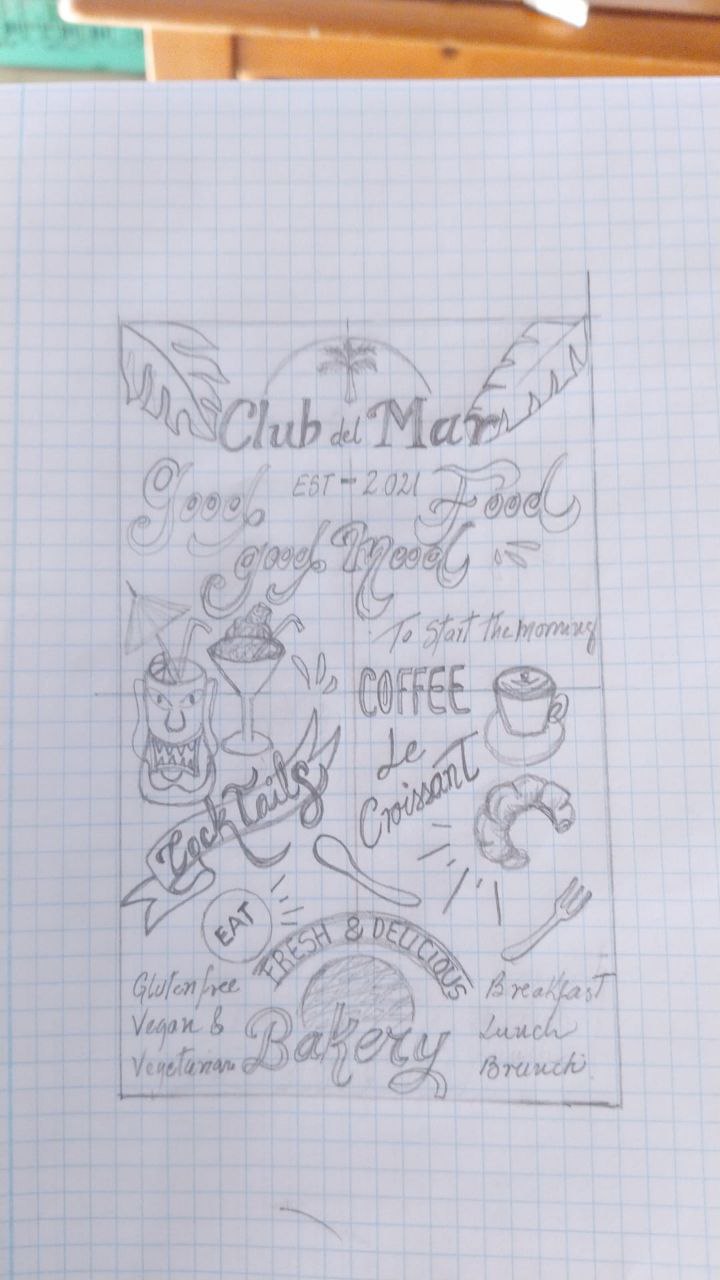 Club del Mar
Good EST-2021 Food
good Mood
To Start The morning
COFFEE
Le
Croissant
CockTails
EAT
FRESH & DELICIOUS
Bakery
Gluten free
Vegan &
Vegetarian
Breakfast
Lunch
Brunch